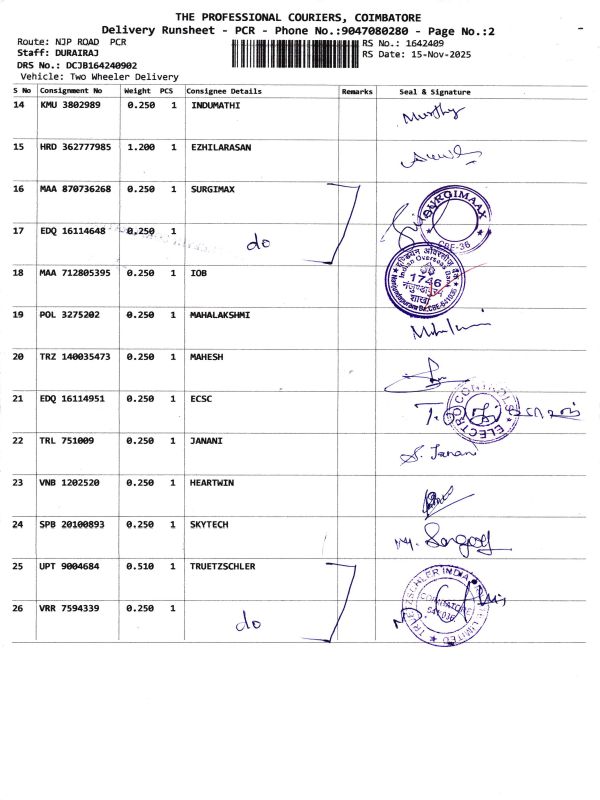 THE PROFESSIONAL COURIERS, COIMBATORE
Delivery Runsheet - PCR - Phone No.:9047080280 - Page No.:2
Route: NJP ROAD PCR
RS No.: 1642409
Staff: DURAIRAJ
RS Date: 15-Nov-2025
DRS No.: DCJB164240902
Vehicle: Two Wheeler Delivery
S No Consignment No Weight PCS Consignee Details Remarks Seal & Signature
14 KMU 3802989 0.250 1 INDUMATHI Murthy
15 HRD 362777985 1.200 1 EZHILARASAN
16 MAA 870736268 0.250 1 SURGIMAX
SURGIMAAX
CBE-36
17 EDQ 16114648 0.250 1 do
18 MAA 712805395 0.250 1 IOB
Indian Overseas Bank
1746
शाखा
19 POL 3275202 0.250 1 MAHALAKSHMI
20 TRZ 140035473 0.250 1 MAHESH
21 EDQ 16114951 0.250 1 ECSC
ELECTRO CONTROLS
22 TRL 751009 0.250 1 JANANI S. Janani
23 VNB 1202520 0.250 1 HEARTWIN
24 SPB 20100893 0.250 1 SKYTECH
25 UPT 9004684 0.510 1 TRUETZSCHLER
TRUETZSCHLER INDIA LIMITED
COIMBATORE
26 VRR 7594339 0.250 1 do